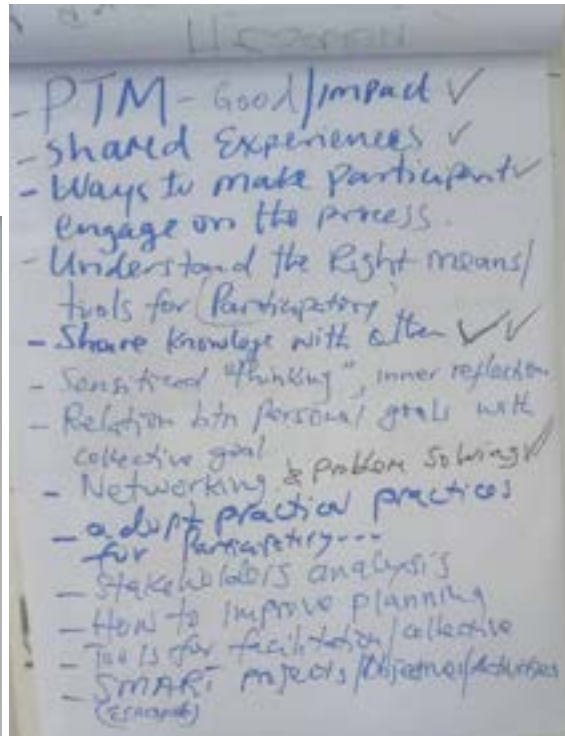 - PTM - Good/impact ✓
- Shared Experiences ✓
- Ways to make participants ✓
engage on the process.
- Understand the Right means/
tools for (Participatory)
- Share knowledge with other ✓✓
- Sensitized "thinking", inner reflection
- Relation btn personal goals with
collective goal
- Networking & problem solving ✓
- adopt practical practices
for participatory...
- Stakeholders analysis
- How to improve planning
- Tools for facilitation/collective
- SMART projects/Objectives/Activities